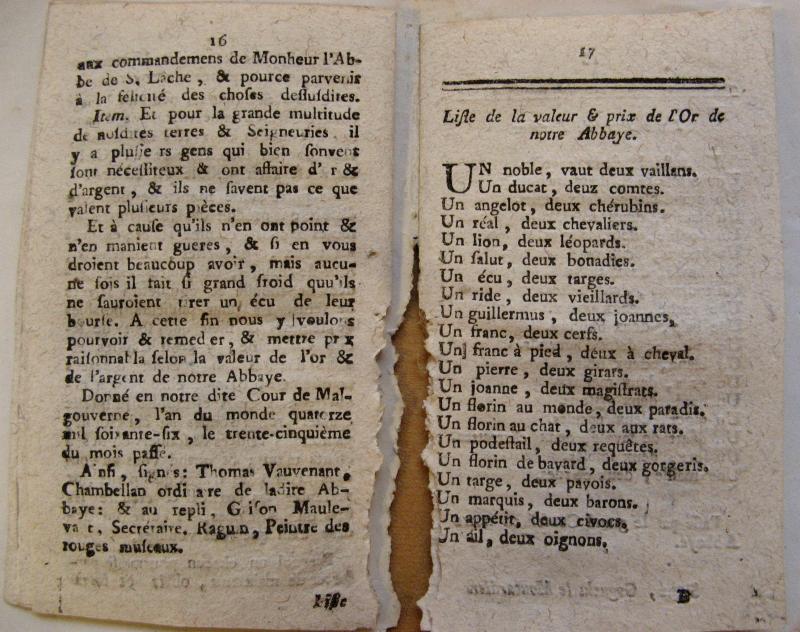 16
aux commandemens de Monheur l'Ab-
be de S. Lâche, & pource parvenir
à la felicité des choſes deſſuſdites.
Item. Et pour la grande multitude
de nuſdites terres & Seigneuries, il
y a pluſie rs gens qui bien ſonvent
ſont néceſſiteux & ont affaire d' r &
d'argent, & ils ne ſavent pas ce que
valent pluſieurs pièces.
Et à cauſe qu'ils n'en ont point &
n'en manient gueres, & ſi en vous
droient beaucôup avoir, mais aucu-
ne fois il fait ſi grand froid quu'ils
ne ſauroient tirer un écu de leur
bourſe. A cette fin nous y voulons
pourvoir & remed er, & mettre prix
raiſonnabla ſelon la valeur de l'or &
de l'argent de notre Abbaye.
Donné en notre dite Cour de Mal-
gouverne, l'an du monde quatorze
mil ſoixante-ſix, le trente-cinquième
du mois paſſé.
Ainſi, ſignés: Thomas Vauvenant,
Chambellan ordi aire de ladire Ab-
baye: & au repli, Griſon Maule-
va t, Secrétaire, Raguin, Peintre des
rouges muſeaux.
Liſte
17
Liſte de la valeur & prix de l'Or de
notre Abbaye.
UN noble, vaut deux vaillans.
Un ducat, deuz comtes.
Un angelot, deux chérubins.
Un réal, deux chevaliers.
Un lion, deux léopards.
Un ſalut, deux bonadies.
Un écu, deux targes.
Un ride, deux vieillards.
Un guillermus, deux joannes,
Un franc, deux cerfs.
Un franc à pied, deux à cheval.
Un pierre, deux girars.
Un joanne, deux magiſtrats.
Un florin au monde, deux paradis.
Un florin au chat, deux aux rats.
Un podeſtail, deux requêtes.
Un florin de bayard, deux gorgeris.
Un targe, deux pavois.
Un marquis, deux barons.
Un appétit, deux civocs,
Un ail, deux oignons,
B